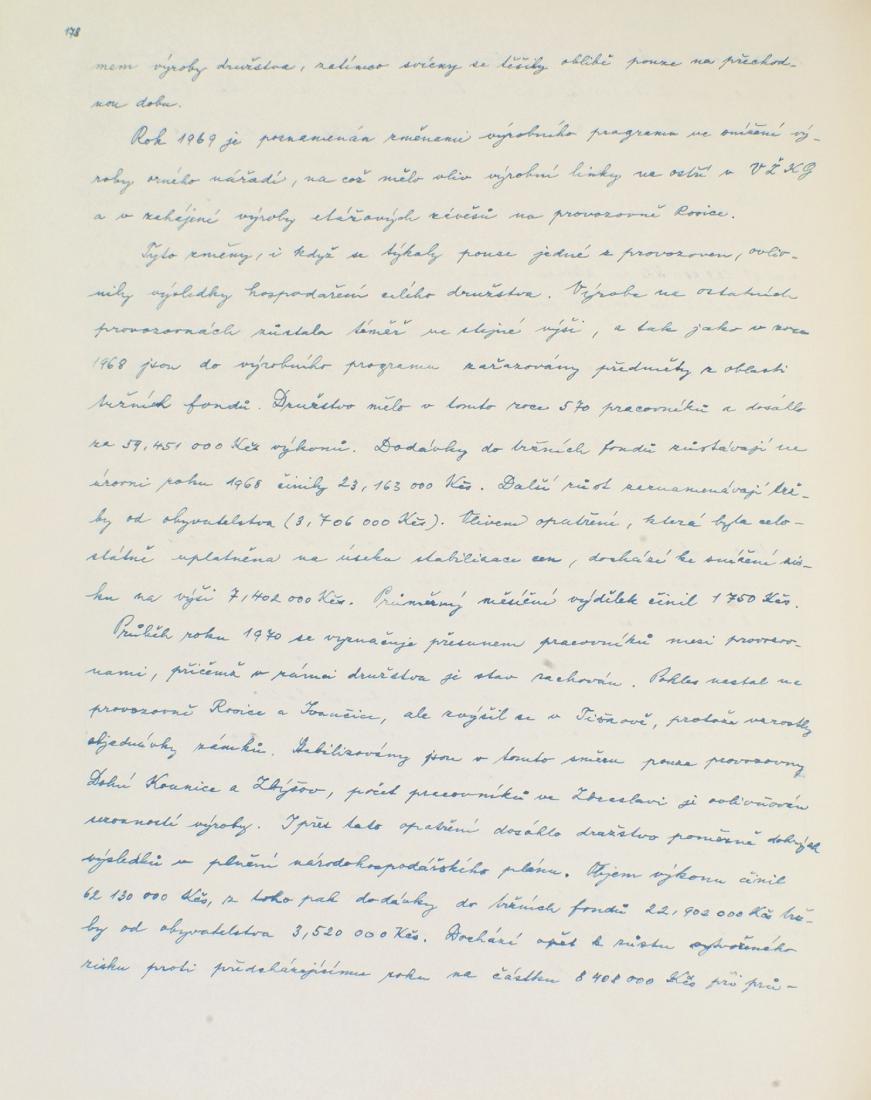 178
mem výroby družstva, zatímco svícny se těšily oblibě pouze na přechod-
nou dobu.
Rok 1969 je poznamenán změnami výrobního programu ve snížení vý-
roby orného nářadí, na což mělo vliv výrobní linky na ostří v VŽKG
a v zahájení výroby etážových závěsů na provozovně Rosice.
Tyto změny, i když se týkaly pouze jedné z provozoven, ovliv-
nily výsledky hospodaření celého družstva. Výroba na ostatních
provozovnách zůstala téměř ve stejné výši, a tak jako v roce
1968 jsou do výrobního programu zařazovány předměty z oblasti
tržních fondů. Družstvo mělo v tomto roce 570 pracovníků a dosáhlo
za 59,451 000 Kčs výkonů. Dodávky do tržních fondů zůstávají na
úrovni roku 1968 činily 23,163 000 Kčs. Další růst zaznamenávají trž-
by od obyvatelstva (3,706 000 Kčs). Vlivem opatření, která byla celo-
státně uplatněna na úseku stabilizace cen, dochází ke snížení zis-
ku na výši 7,402 000 Kčs. Průměrný měsíční výdělek činil 1 750 Kčs.
Průběh roku 1970 se vyznačuje přesunem pracovníků mezi provozov-
nami, přičemž v rámci družstva je stav zachován. Pokles nastal na
provozovně Rosice a Ivančice, ale zvýšil se v Tišnově, protože vzrostly
objednávky zámků. Stabilizovány jsou v tomto směru pouze provozovny
Dolní Kounice a Zbýšov, počet pracovníků ve Zbraslavi je ovlivňován
sezonností výroby. I přes tato opatření dosáhlo družstvo poměrně dobrých
výsledků v plnění národohospodářského plánu. Objem výkonu činil
62 130 000 Kčs, z toho pak dodávky do tržních fondů 22,902 000 Kčs trž-
by od obyvatelstva 3,520 000 Kčs. Dochází opět k růstu vytvořeného
zisku proti předcházejícímu roku na částku 8 408 000 Kčs při prů-